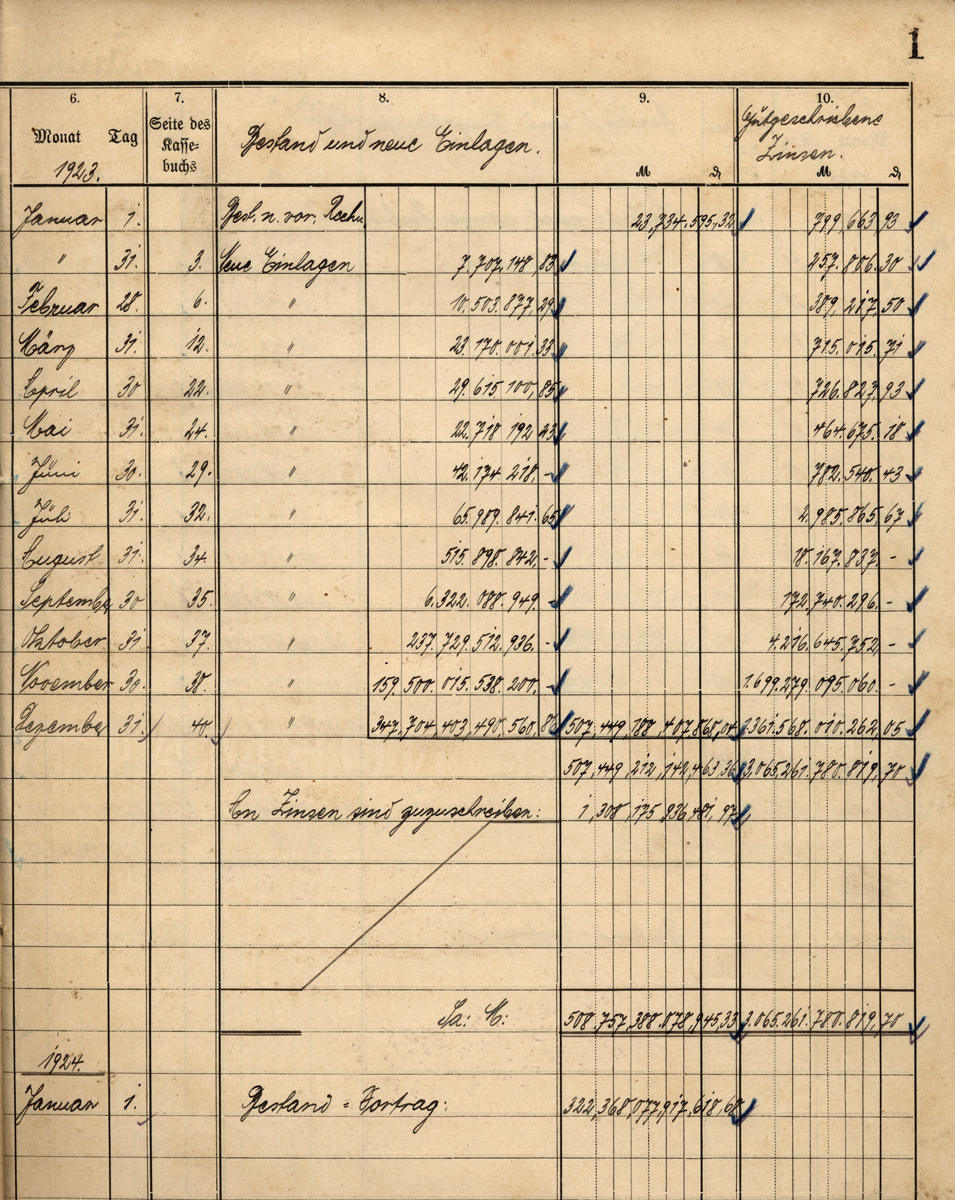 1
6. 7. 8. 9. 10.
Monat Tag Seite des Kasse-buchs Bestand und neue Einlagen. Gutgeschriebene Zinsen.
1923. M ₰ M ₰
Januar 1. Best. n. vor. Rechn. 23,734.595,32 799,663,93
" 31. 3. Neue Einlagen 7.707.148,83 257.806.30
Februar 28. 6. " 10.503.877,29 389,217,50
März 31. 12. " 23.170.001.33 715.015.71
April 30 22. " 29.615.100,85 726.827,93
Mai 31. 24. " 22.718.192 23 464.675.18
Juni 30. 29. " 42.174.218,- 782.540.43
Juli 31. 32. " 65.989.841.65 2.985.865,67
August 31. 34. " 515.898.842,- 18.167.837.-
September 30 35. " 6.322.088.949.- 172.740.296.-
Oktober 31 37. " 237.729.512.936.- 4.216.645.752,-
November 30. 38. " 159.500.015.538.200.- 1.699.279.095.060.-
Dezember 31. 40. " 347,704,403,490,560,86 507,449,188,407,868,04 1.361.568.010.262,05
507,449,212,142,463,36 3.065.261.780.819,70
An Zinsen sind zuzuschreiben: 1,308,175,936,481,97
Sa: M: 508,757,388.078,945,33 3.065.261.780.819,70
1924.
Januar 1. Bestand = Vortrag: 322,368,077,917,618,68